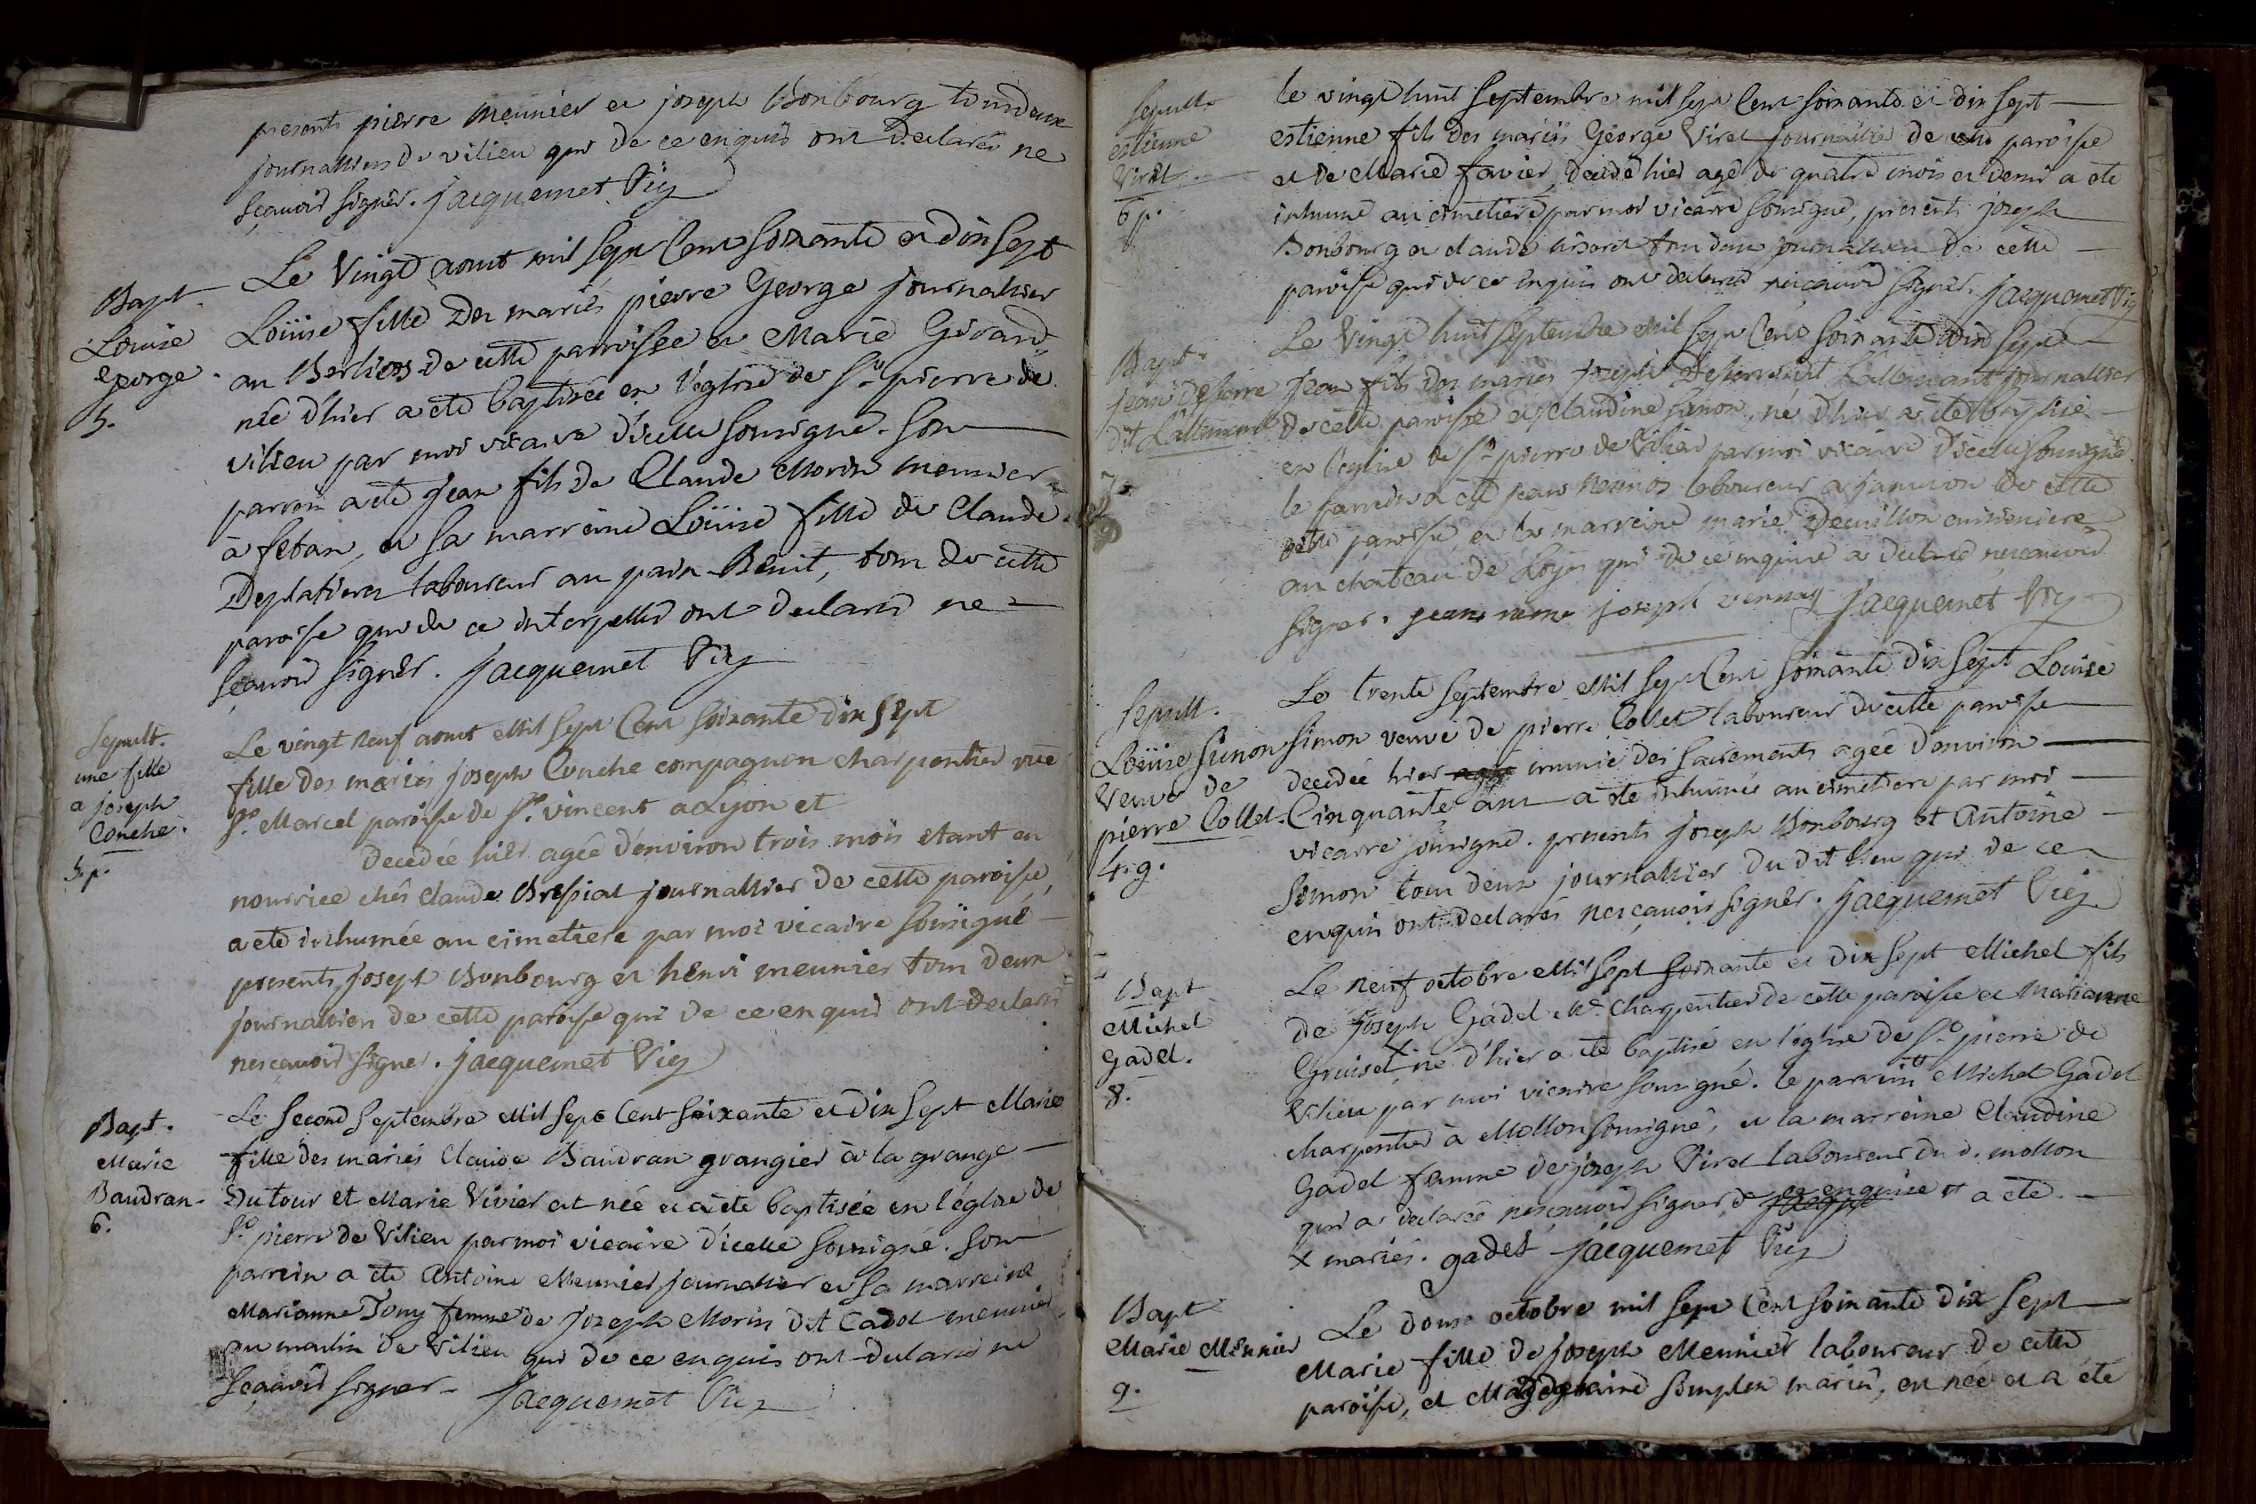 presents pierre meunier et joseph Bonbourg tous deux
journalliers de vilieu qui de ce enquis ont declarés ne
sçavoir signer. jacquemet Vic
Bapt.
Louise
george.
5.
Le Vingt aout mil sept Cent soixante et dix sept
Loüise fille Des mariés pierre George journalier
au Berlion de cette parroisse et Marie Girand
née d'hier a eté baptisée en l'eglise de St. pierre de
vilieu par moi vicaire d'icelle soussigné. son
parrein a eté jean fils de Claude Morin meunier
à fetan, et sa marreine Loüise fille de Claude
Deplatieres laboureur au pain Benit, tous de cette
paroisse qui de ce interpellés ont declarés ne
sçavoir signer. jacquemet Vic
Sepult.
une fille
a joseph
Couche.
5. p.
Le vingt neuf aout Mil sept Cent soixante dix sept
fille des mariés joseph Couche compagnon charpentier rüe
St. Marcel paroisse de St. vincent a Lyon et
Decedée hier agée d'environ trois mois etant en
nourrice chés Claude Bressiat journallier de cette paroisse,
a eté inhumée au cimetiere par moi vicaire soussigné
presents joseph Bonbourg et henri meunier tous deux
journalliers de cette paroisse qui de ce enquis ont declarés
nesçavoir signer. jacquemet Vic
Bapt.
Marie
Baudran.
6.
Le second septembre Mil sept Cent soixante et dix sept Marie
fille des mariés Claude Baudran grangier à la grange
Du tour et Marie Vivier est née et a eté baptisée en l'église de
St. pierre de Vilieu par moi vicaire d'icelle soussigné. son
parrein a eté Antoine Meunier journallier et sa marreine
Marianne Tony femme de joseph Morin dit Cadot meunier
au moulin de Vilieu qui de ce enquis ont declarés ne
sçavoir signer. jacquemet Vic
Sepult.
estienne
Viret.
6 p.
le vingt huit septembre mil sept Cent soixante et dix sept
estienne fils des mariés George Viret journalier de cette paroisse
et de Marie favier, decedé hier agé de quatre mois et demi a eté
inhumé au cimetiere par moi vicaire soussigné, presents joseph
Bonbourg et claude tous deux journalliers de cette
paroisse qui de ce enquis ont declarés nesçavoir signer. jacquemet Vic
Bapt.
jean deserre
dit Lallemand
7.
Le Vingt huit septembre Mil sept Cent soixante dix sept
jean fils des mariés joseph Deserre dit Lallemant journallier
de cette paroisse et claudine simon, né d'hier a eté baptisé
en l'eglise de St. pierre de Vilieu par moi vicaire d'icelle soussigné.
le parrein a eté jean laboureur a janivon de cette
cette paroisse et la marreine marie Devillon cuisiniere
au chateau de Loyes qui de ce enquise a declaré nesçavoir
signer. jean joseph vernay jacquemet Vic
Sepult.
Loüise Simon
Veuve de
pierre Collet.
4. g.
Le trente septembre Mil sept Cent soixante dix sept Louise
simon veuve de pierre Collet laboureur de cette paroisse
decedée hier agée munie des sacrements agée d'environ
Cinquante ans a eté inhumée au cimetiere par moi
vicaire soussigné. presents joseph Bonbourg et Antoine
simon tous deux journallier du dit lieu qui de ce
enquis ont declarés nesçavoir signer. jacquemet Vic
Bapt
Michel
Gadel.
8.
Le neuf octobre Mil sept soixante et dix sept Michel fils
de joseph Gadel Me. charpentier de cette paroisse et Marianne
Gruisel né d'hier a eté baptisé en l'église de St. pierre de
Vilieu par moi vicaire soussigné. le parrein Michel Gadel
charpentier à Mollon soussigné, et la marreine Claudine
Gadel femme de joseph Viret laboureur du d. mollon
qui a declarée nesçavoir signer de ce enquise a eté
x mariés. gadel jacquemet Vic
Bapt
Marie Meunier
9.
Le douse octobre mil sept Cent soixante dix sept
Marie fille de joseph Meunier laboureur de cette
paroisse, et Magdelaine simplex mariés, est née et a eté